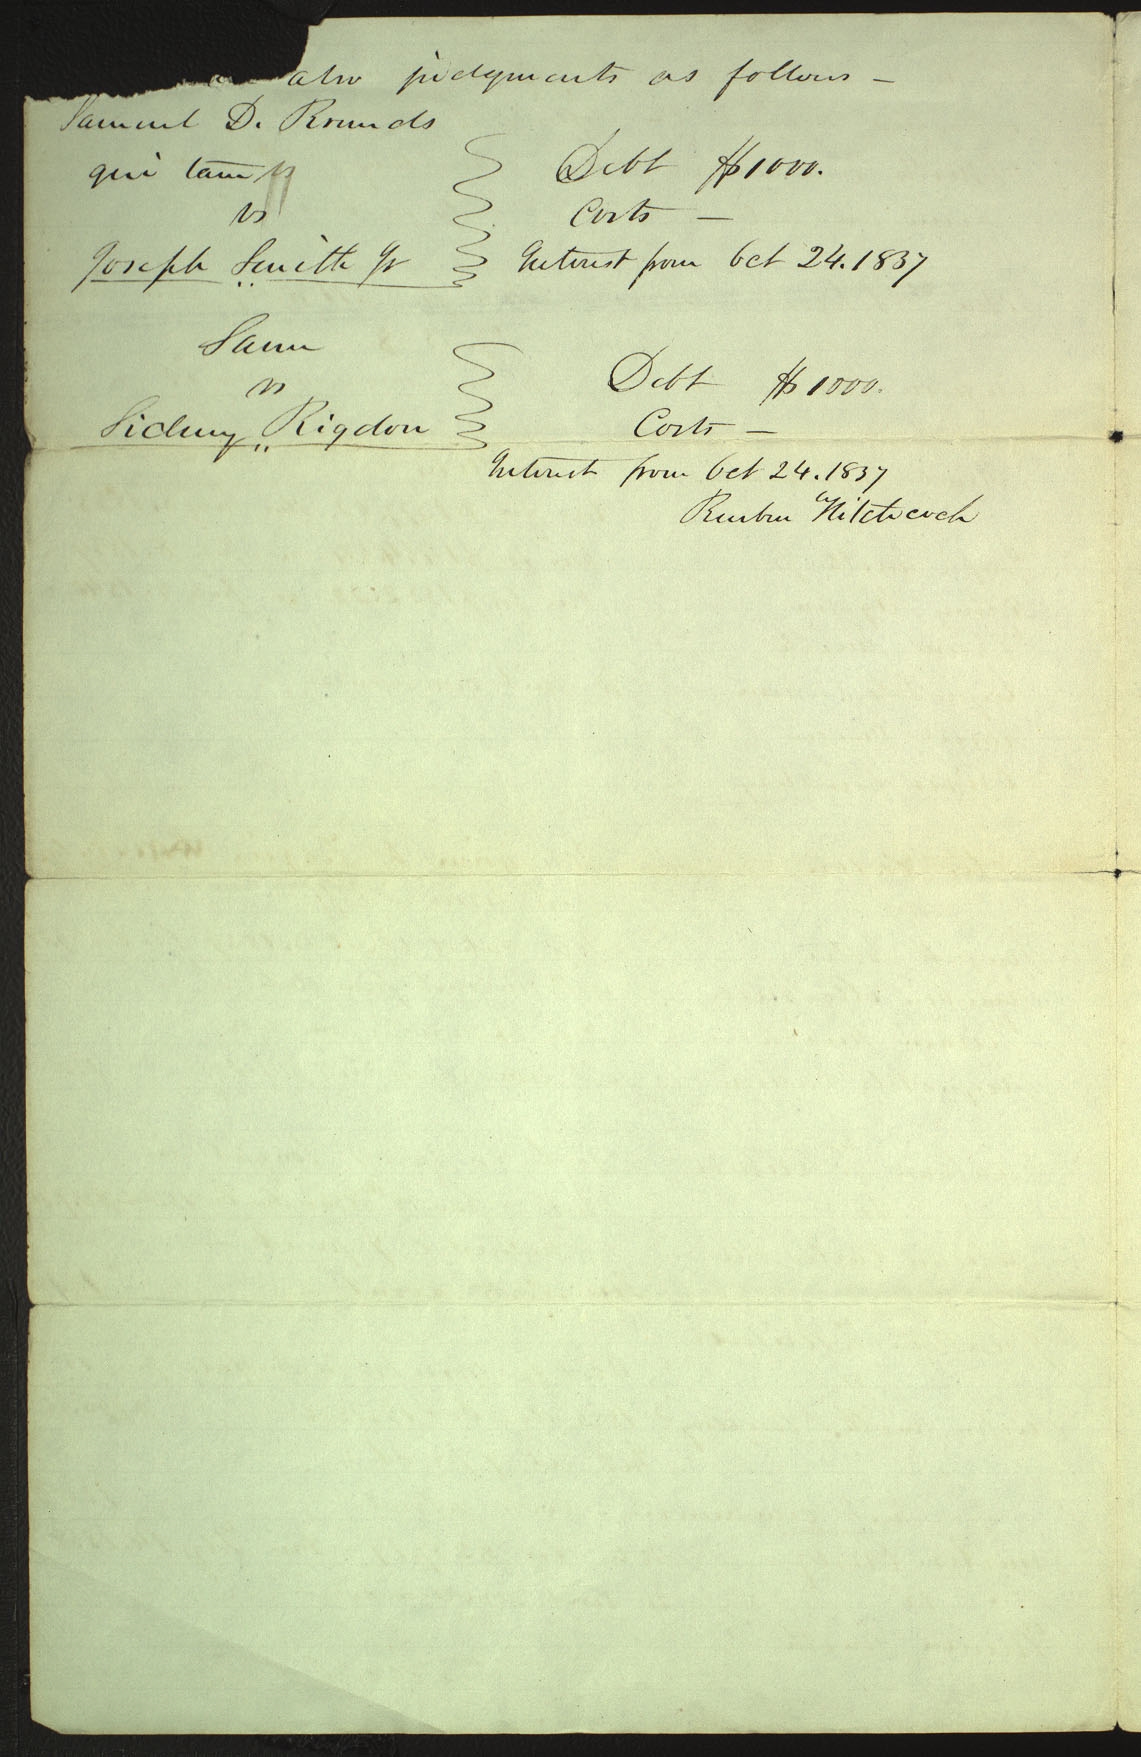 also judgments as follows –
Samuel D. Rounds
qui tam vs
vs
Joseph Smith Jr
Debt $1000.
Costs –
Interest from Oct 24. 1837
Same
vs
Sidney Rigdon
Debt $1000.
Costs –
Interest from Oct 24. 1837
Reuben Hitchcock